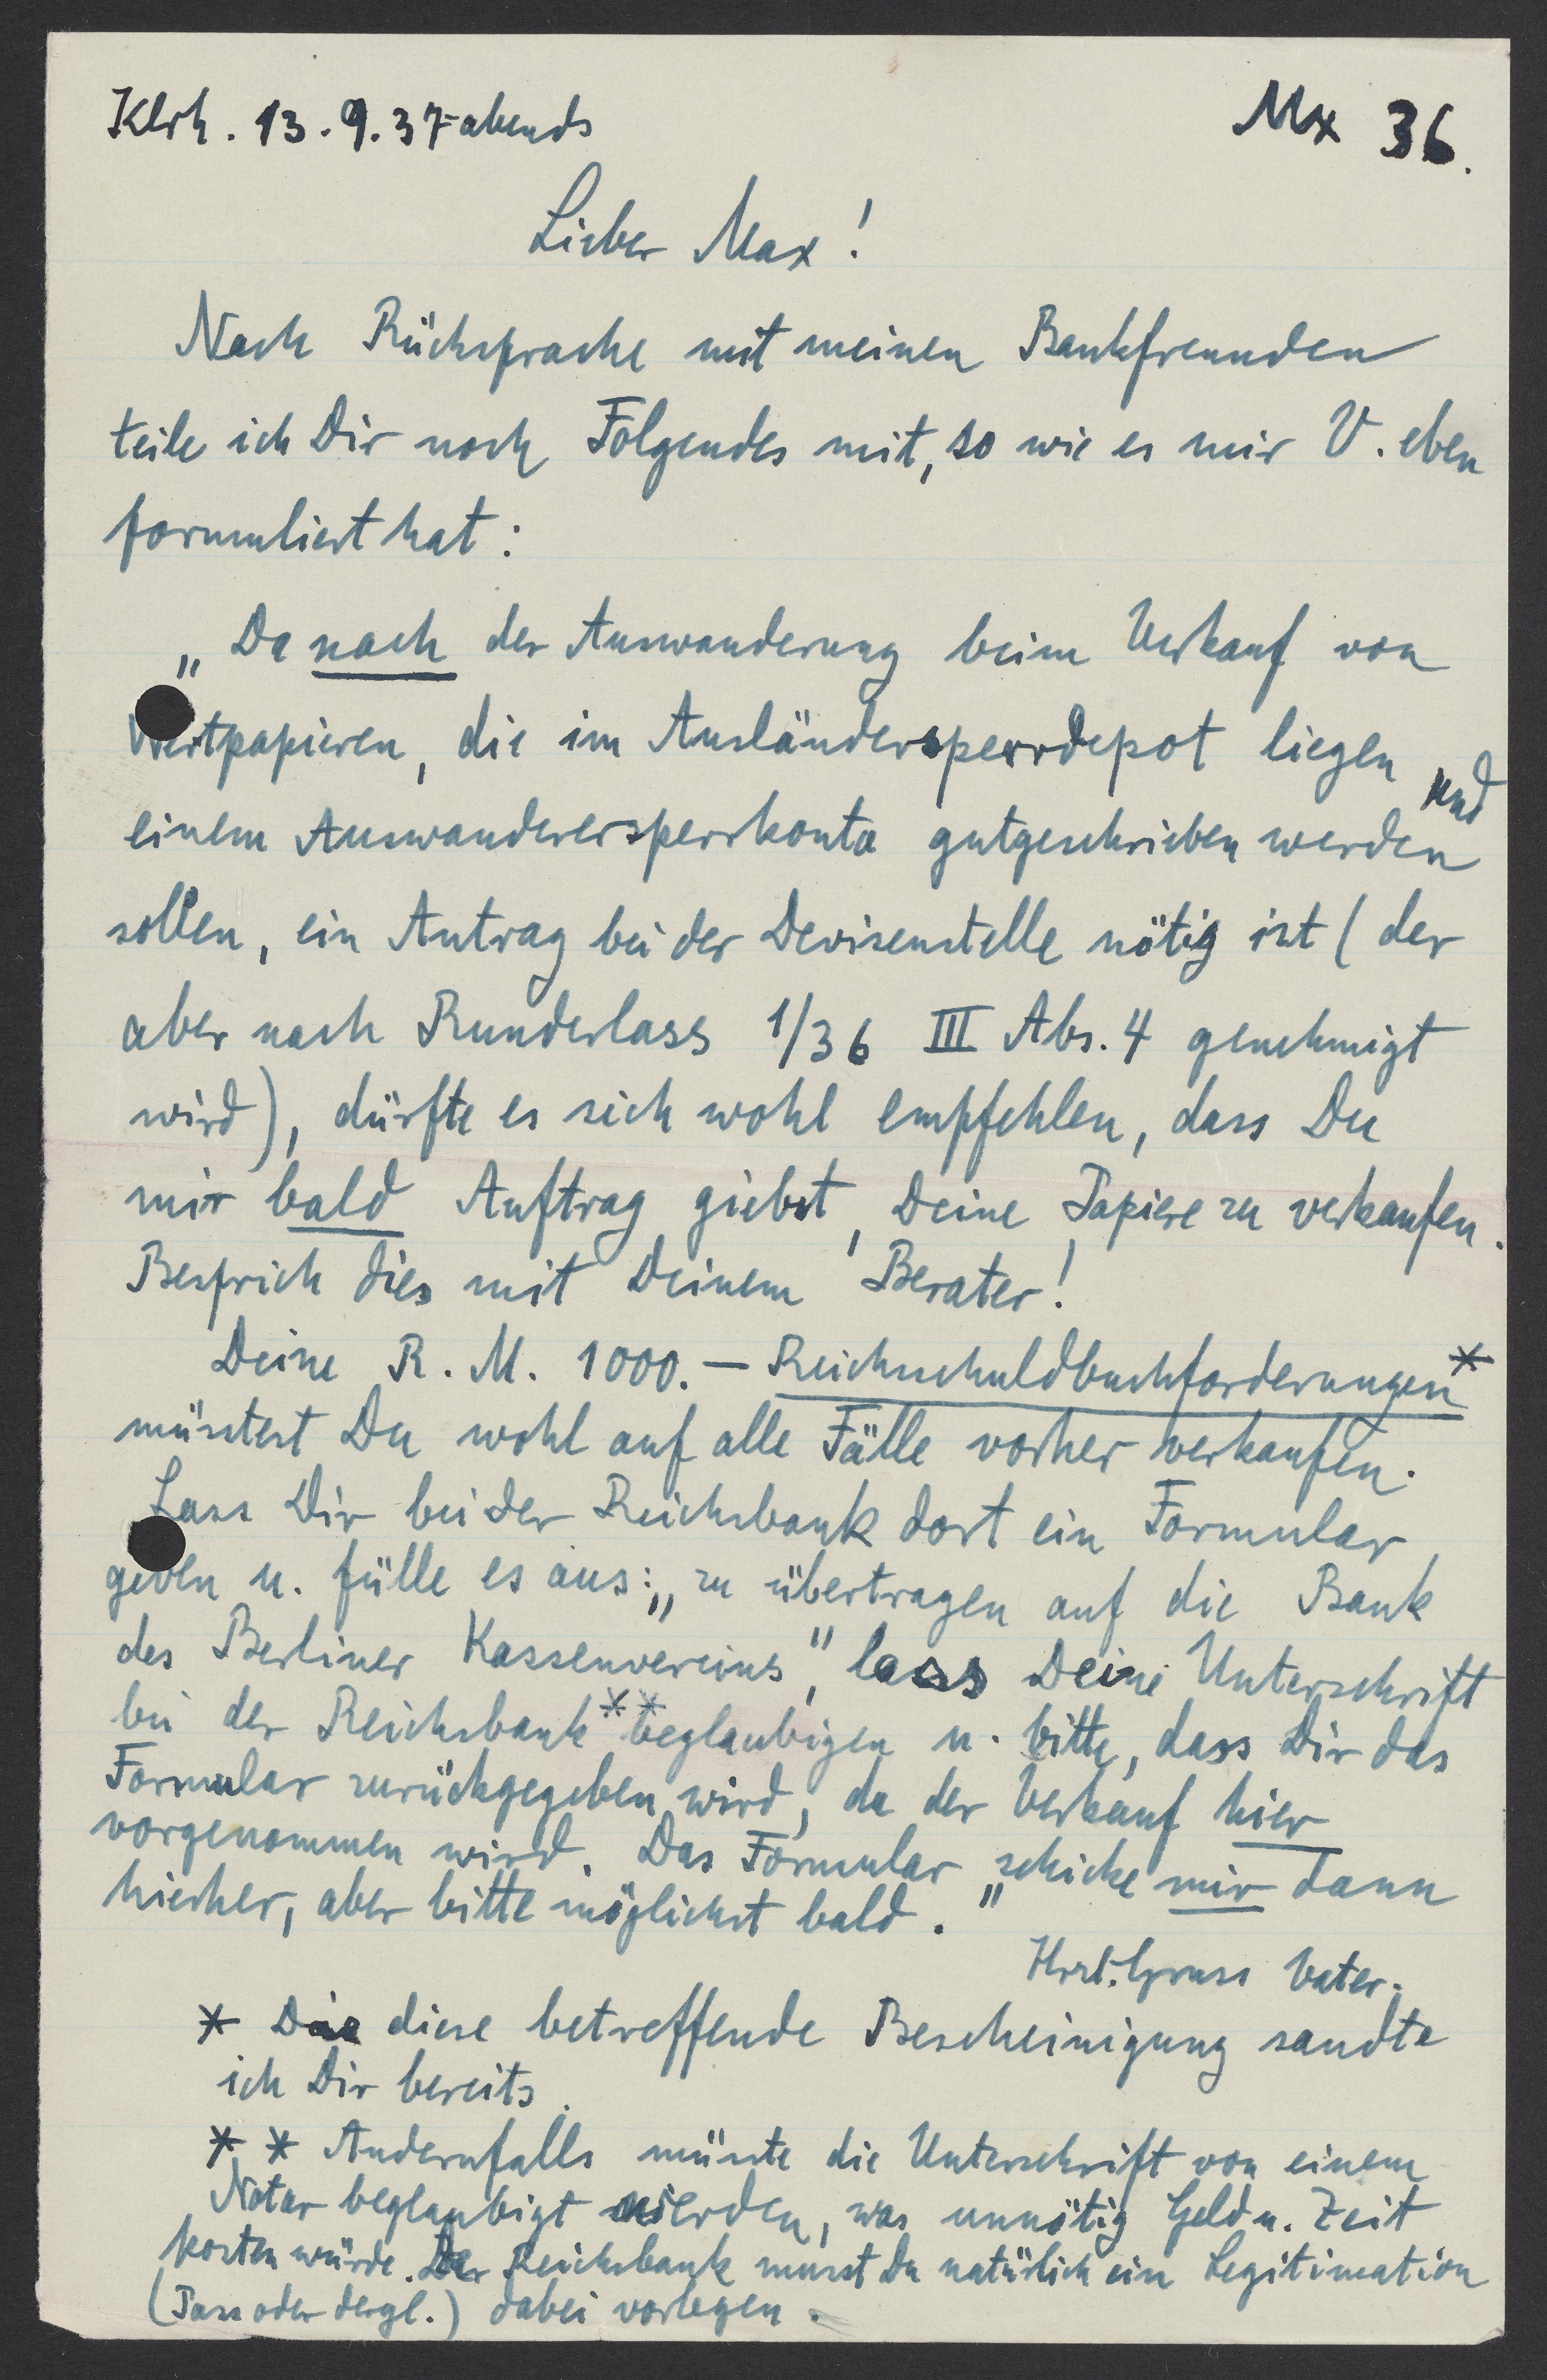 Klrh. 13.9.37 abends
Mx 36.
Lieber Max!
Nach Rücksprache mit meinen Bankfreunden
teile ich Dir noch Folgendes mit, so wie es mir V. eben
formuliert hat:
„Da nach der Auswanderung beim Verkauf von
Wertpapieren, die im Ausländersperrdepot liegen und
einem Auswanderersperrkonto gutgeschrieben werden
sollen, ein Antrag bei der Devisenstelle nötig ist (der
aber nach Runderlass 1/36 III Abs. 4 genehmigt
wird), dürfte es sich wohl empfehlen, dass Du
mir bald Auftrag giebst, Deine Papiere zu verkaufen.
Besprich dies mit Deinem Berater!
Deine R. M. 1000.— Reichsschuldbuchforderungen*
müsstest Du wohl auf alle Fälle vorher verkaufen.
Lass Dir bei der Reichsbank dort ein Formular
geben u. fülle es aus: „zu übertragen auf die Bank
des Berliner Kassenvereins", lass Deine Unterschrift
bei der Reichsbank** beglaubigen u. bitte, dass Dir das
Formular zurückgegeben wird, da der Verkauf hier
vorgenommen wird. Das Formular schicke mir dann
hierher, aber bitte möglichst bald."
Hrzl. Gruss Vater.
* Die diese betreffende Bescheinigung sandte
ich Dir bereits.
** Andernfalls müsste die Unterschrift von einem
Notar beglaubigt werden, was unnötig Geld u. Zeit
kosten würde. Der Reichsbank musst Du natürlich ein Legitimation
(Pass oder dergl.) dabei vorlegen.